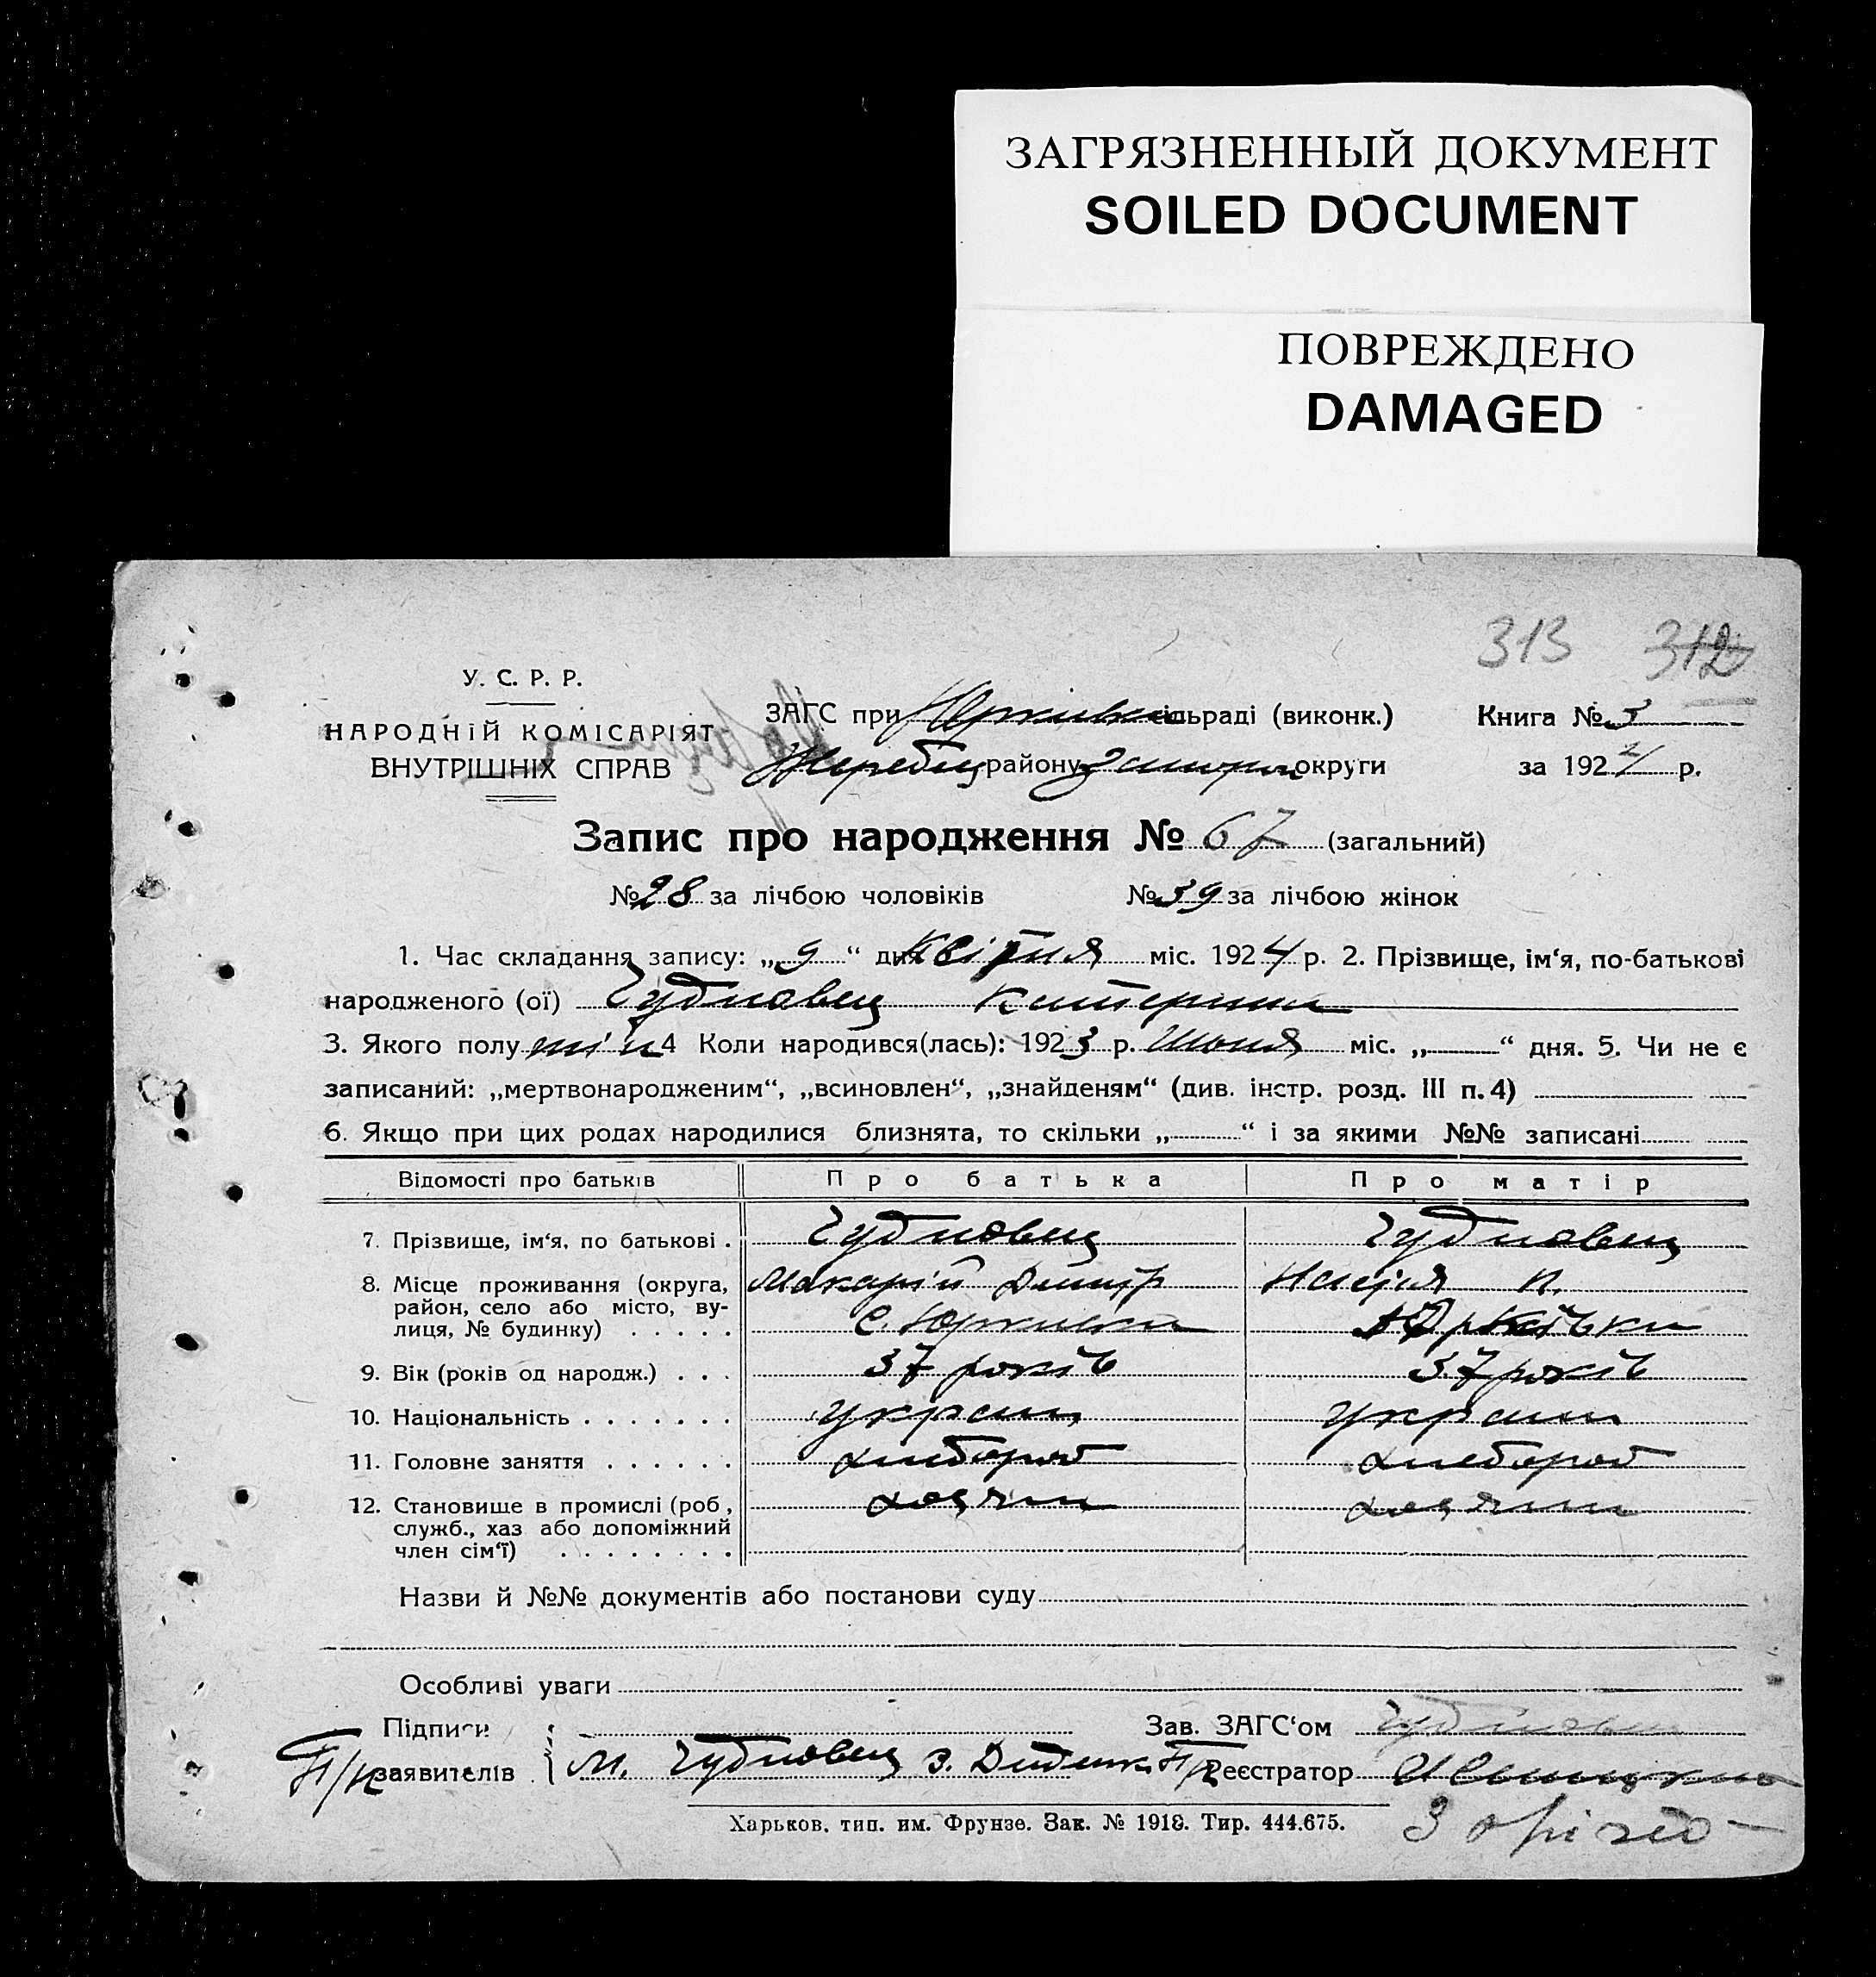 ЗАГРЯЗНЕННЫЙ ДОКУМЕНТ
SOILED DOCUMENT
ПОВРЕЖДЕНО
DAMAGED
313 312
У. С. Р. Р.
НАРОДНІЙ КОМІСАРІЯТ
ВНУТРІШНІХ СПРАВ
ЗАГС при Юрківка сільраді (виконк.)
Жеребец району Запорж округи
Книга № 3
за 1924 р.
Запис про народження № 67 (загальний)
№ 28 за лічбою чоловіків № 39 за лічбою жінок
1. Час складання запису: „ 9 “ дня Квітня міс. 1924 р. 2. Прізвище, ім‘я, по-батькові
народженого (ої) Чубповец Катерина
3. Якого полу жін 4 Коли народився(лась): 1923 р. Июня міс. „ “ дня. 5. Чи не є
записаний: „мертвонародженим“, „всиновлен“, „знайденям“ (див. інстр. розд. III п. 4)
6. Якщо при цих родах народилися близнята, то скільки „ “ і за якими №№ записані
Відомості про батьків Про батька Про матір
7. Прізвище, ім‘я, по батькові . Чубповец Чубповец
8. Місце проживання (округа, Макарій Дмитр П.
район, село або місто, ву- С. Юрківка Юрківка
лиця, № будинку) . . . . .
9. Вік (років од народж.) . . . 37 років 37 років
10. Національність . . . . . . . україн україн
11. Головне заняття . . . . . . хлебороб хлебороб
12. Становище в промислі (роб., хозяин хозяин
служб., хаз або допоміжний
член сім‘ї) . . . . . . . .
Назви й №№ документів або постанови суду
Особливі уваги
Підписи
заявителів М. Чубповец З.
Зав. ЗАГС‘ом Чубповец
Реєстратор
Харьков, тип. им. Фрунзе. Зак. № 1918. Тир. 444.675.